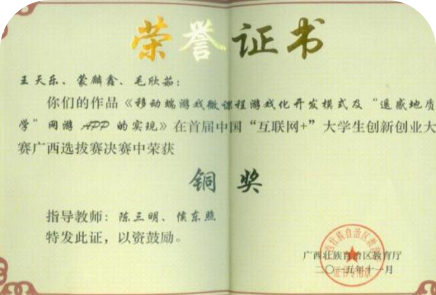 荣誉证书
王天乐、蒙麟鑫、毛欣茹:
你们的作品《移动端游戏微课程游戏化开发模式及“遥感地质
学”网游APP的实现》在首届中国“互联网+”大学生创新创业大
赛广西选拔赛决赛中荣获
铜奖
指导教师:陈三明、侯东照
特发此证,以资鼓励。
广西壮族自治区教育厅
二〇一五年十一月